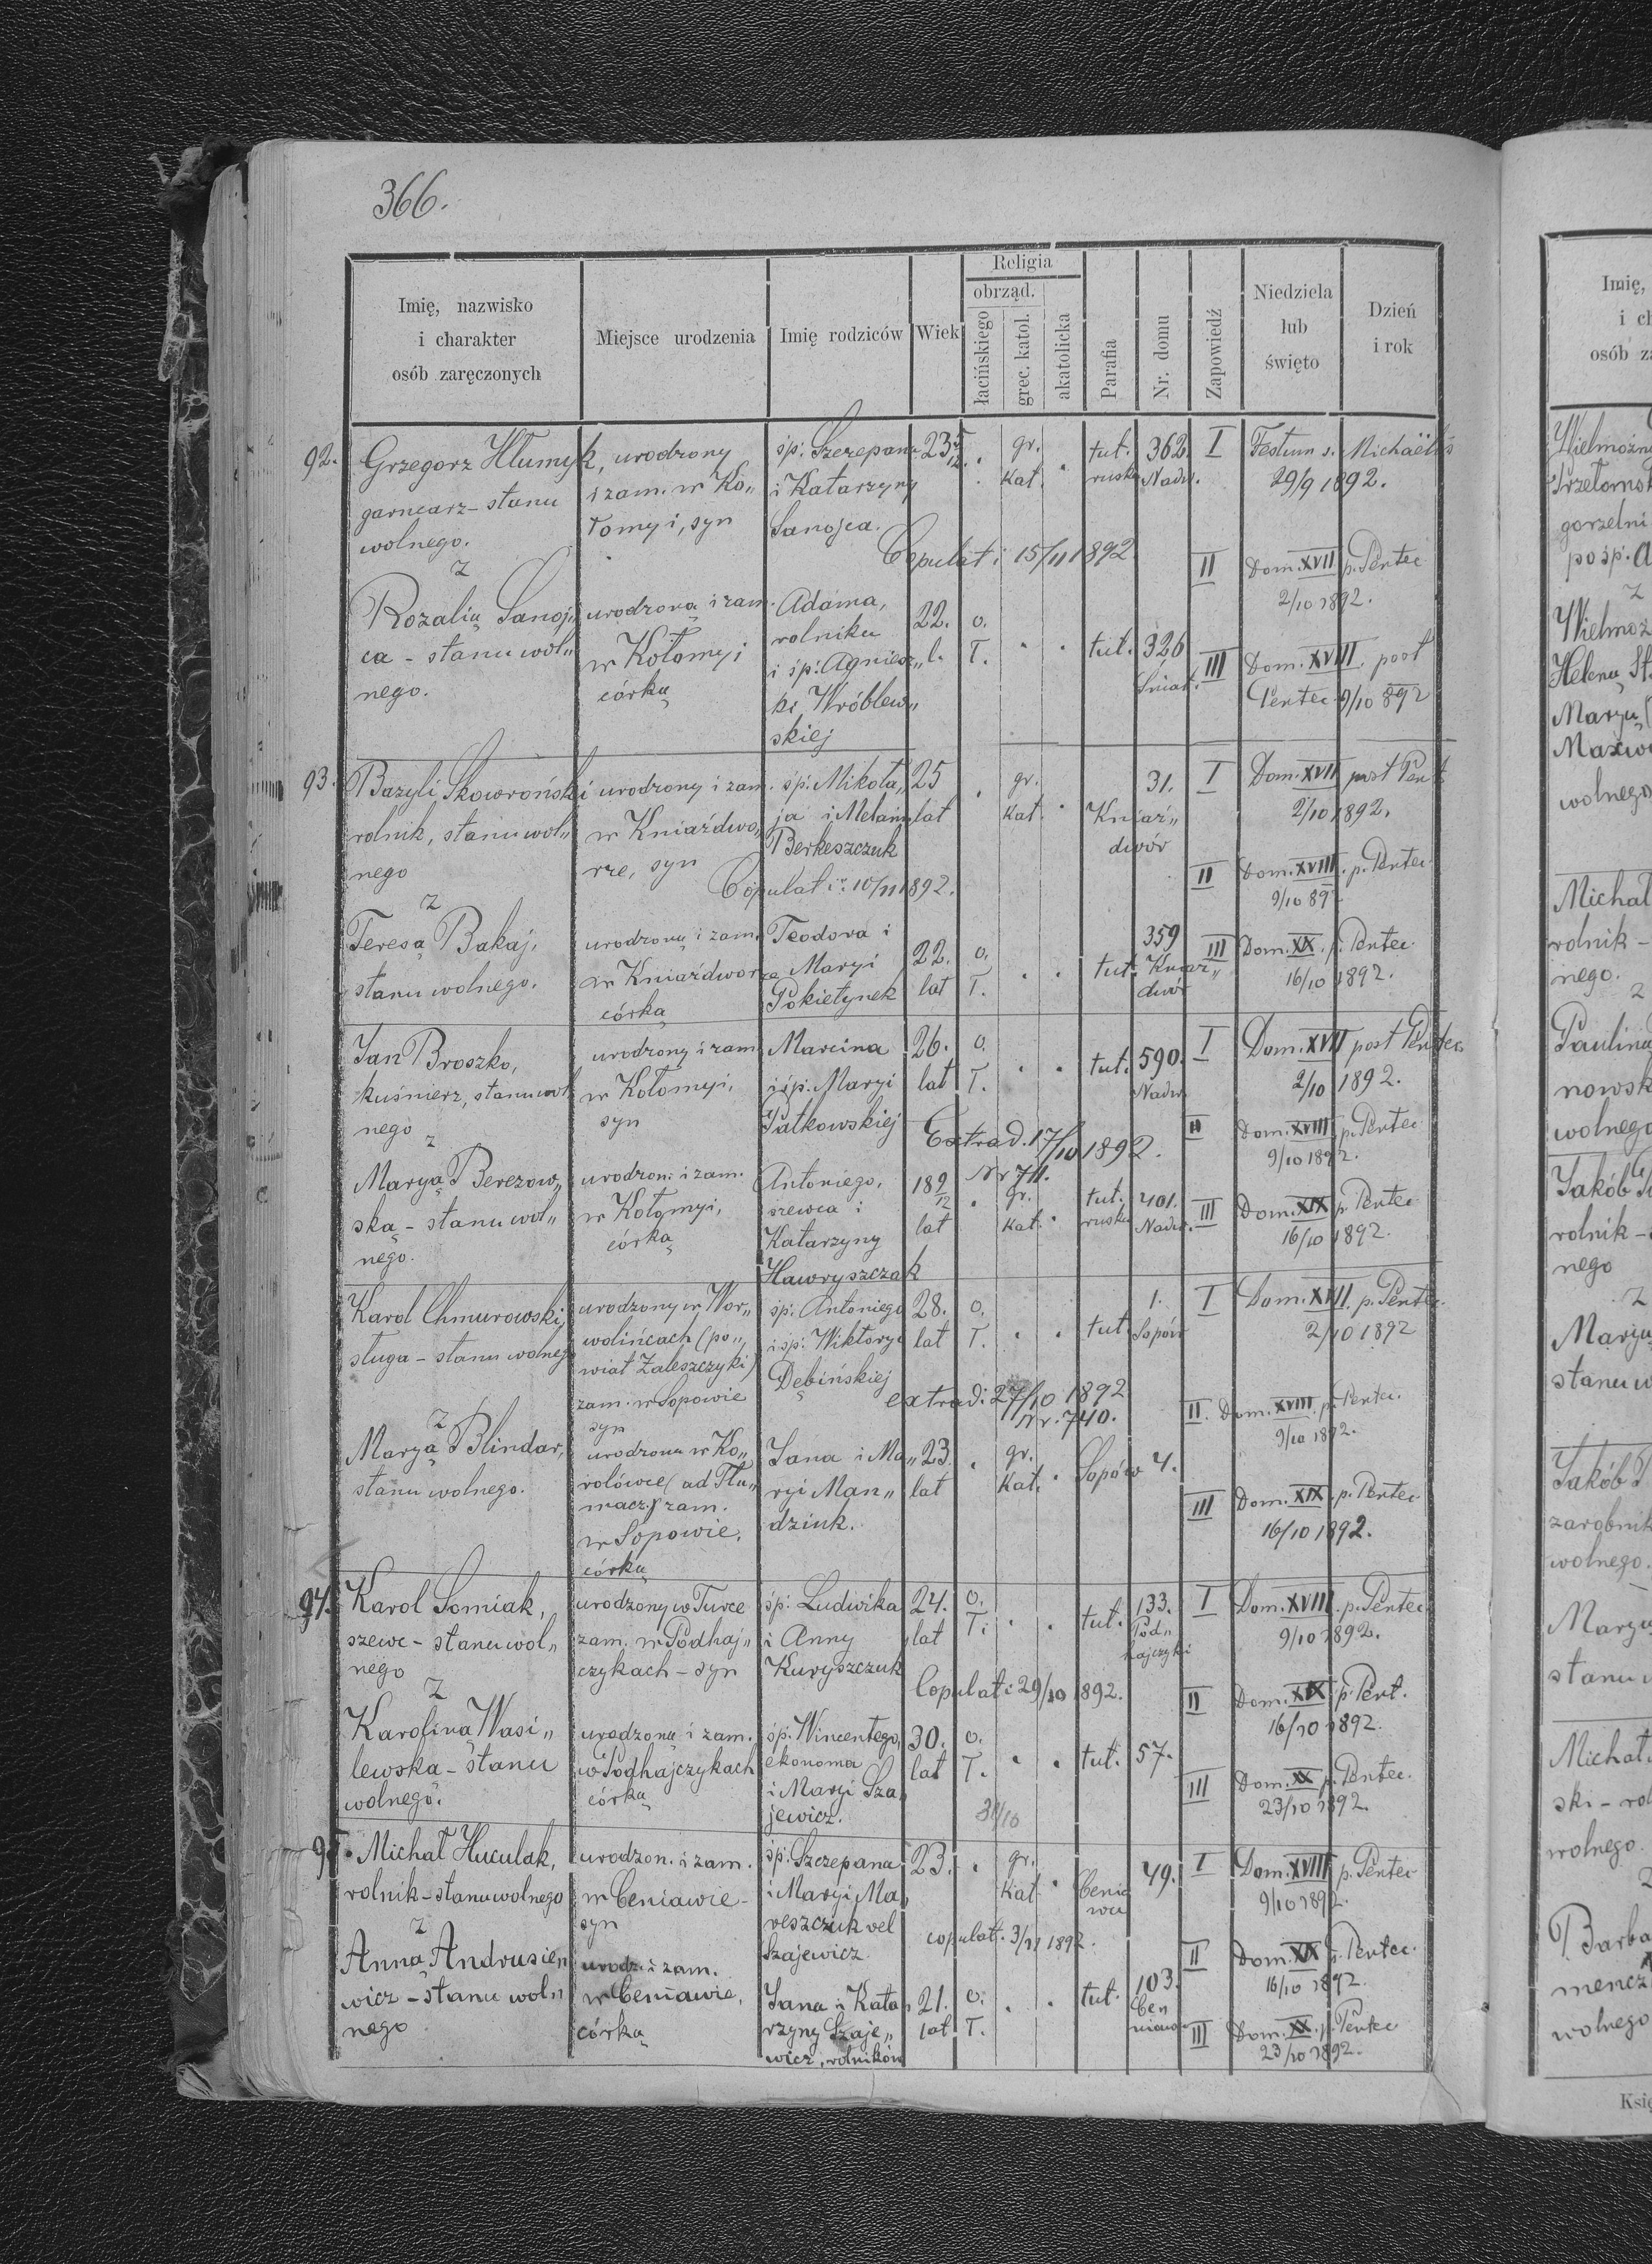 366.
Imię, nazwisko
i charakter
osób zaręczonych
Miejsce urodzenia
Imię rodziców
Wiek
Religia
obrząd.
łacińskiego
grec. katol.
akatolicka
Parafia
Nr. domu
Zapowiedź
Niedziela
lub
święto
Dzień
i rok
92.
Grzegorz Hlumyk,
garncarz - stanu
wolnego.
z
urodzony
i zam. w Ko„
łomyi, syn
śp. Szczepana
i Katarzyny
Sanojca.
23 5/12.
gr.
kat.
tut.
ruska
362.
Nadw.
I
Festum s. Michaëlis
29/9 1892.
Copulati 15/11 1892
II
Dom. XVII p. Pentec
2/10 1892.
Rozalią Sanoj„
ca - stanu wol„
nego.
urodzoną i zam.
w Kołomyi
córką
Adama,
rolnika
i śp. Agniesz„
ki Wróblew„
skiej
22.
l.
o.
ł.
tut.
326
Śniat.
III
Dom. XVIII. post
Pentec. 9/10 892
93.
Bazyli Skowroński
rolnik, stanu wol„
nego
z
urodzony i zam.
w Kniaźdwo„
rze, syn
śp. Mikoła„
ja i Melanii
Berkeszczuk
25
lat
gr.
kat.
Kniaź„
dwór
31.
I
Dom. XVII post Pent
2/10 1892.
Copulati 10/11 1892.
II
Dom. XVIII. p. Pentec.
9/10 892
Teresą Bakaj,
stanu wolnego.
urodzoną i zam.
w Kniaźdworze
córką
Teodora i
Maryi
Pokietynek
22.
lat
o.
ł.
tut.
359
Kniaź„
dwór
III
Dom. XIX. p. Pentec.
16/10 1892.
Jan Broszko,
kuśnierz, stanu wol
nego
z
urodzony i zam.
w Kołomyi,
syn
Marcina
i śp. Maryi
Patkowskiej
26.
lat
o.
ł.
tut.
590.
Nadw.
I
Dom. XVII post Pentec.
2/10 1892.
Extrad. 17/10 1892.
Nr 711.
II
Dom. XVIII p. Pentec
9/10 1892.
Maryą Berezow„
ską - stanu wol„
nego.
urodzon. i zam.
w Kołomyi,
córką
Antoniego,
szewca i
Katarzyny
Hawryszczak
18 9/12
lat
gr.
kat.
tut.
ruska
401.
Nadw.
III
Dom. XIX p. Pentec
16/10 1892.
Karol Chmurowski,
sługa - stanu wolnego
z
urodzony w Wor„
wolińcach (po„
wiat Zaleszczyki)
zam. w Sopowie
syn
śp. Antoniego
i śp. Wiktoryi
Dębińskiej
28.
lat
o.
ł.
tut
1.
Sopów
I
Dom. XVII. p. Pentec.
2/10 1892
extrad: 27/10 1892
Nr. 740.
II.
Dom. XVIII. p. Pentec.
9/10 1892.
Maryą Blindar,
stanu wolnego.
urodzona w Ko„
rolówce (ad Tłu„
macz) zam.
w Sopowie,
córką
Jana i Ma„
ryi Man„
dziuk.
23.
lat
gr.
kat.
Sopów
4.
III
Dom. XIX. p. Pentec
16/10 1892.
94.
Karol Somiak,
szewc - stanu wol„
nego
z
urodzony w Turce
zam. w Podhaj„
czykach - syn
śp. Ludwika
i Anny
Kuryszczuk
24.
lat
o.
ł.
tut.
133.
Pod„
hajczyki
I
Dom. XVIII. p. Pentec
9/10 1892.
Copulati 29/10 1892.
II
Dom. XIX p. Pent.
16/10 1892.
Karoliną Wasi„
lewska - stanu
wolnego.
urodzoną i zam.
w Podhajczykach
córką
śp. Wincentego,
ekonoma
i Maryi Sza„
jewicz.
30.
lat
o.
ł.
tut.
57.
III
Dom. XX p. Pentec.
23/10 1892.
31/10
95.
Michał Huculak,
rolnik - stanu wolnego
z
urodzon. i zam.
w Ceniawie -
syn
śp. Szczepana
i Maryi Ma„
reszczuk vel
Szajewicz
23.
gr.
kat
Cenia
wa
49.
I
Dom. XVIII p. Pentec
9/10 1892.
copulat. 3/11 1892.
II
Dom. XIX p. Pentec.
16/10 1892.
Anną Andrusie„
wicz - stanu wol„
nego
urodz. i zam.
w Ceniawie,
córką
Jana i Kata„
rzyny Szaje„
wicz, rolników
21.
lat
o.
ł.
tut.
103.
Cen
niawa
III
Dom. XX. p. Pentec
23/10 1892.
Imię,
i ch
osób za
Wielmożn
gorzelni
po śp. A
z
Wielmoż
Helena St.
Maryą
wolnego
Michał
rolnik -
nego.
z
Paulina
nowsk
wolnego
Jakób
rolnik -
nego
z
Maryą
stanu w
Jakób
zarobnik
wolnego.
Maryą
stanu w
Michał
ski - rol
wolnego.
z
Barba
mencz
wolnego
Księ